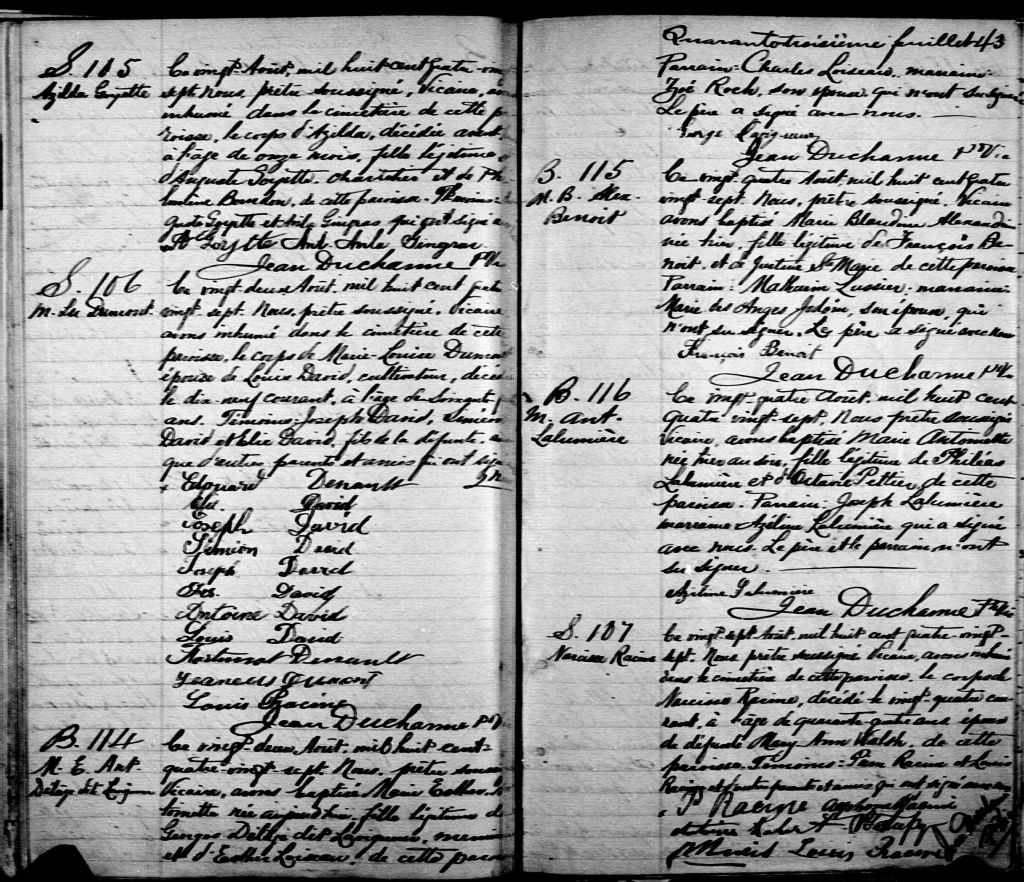 S. 105
Azilda Goyette
Ce vingt Août, mil huit cent quatre vin
sept nous, prêtre soussigné, Vicaire, av
inhumé dans le cimetière de cette p
roisse, le corps d'Azilda, décédée avant
à l'âge de onze mois, fille légitime
d'Auguste Goyette, charretier et de Ph
Bourdon, de cette paroisse. Témoins
guste Goyette et Gingras qui ont signé a
A Goyette Gingras
Jean Ducharme Ptre V
S. 106
M. Ls Dumont
Ce vingt deux Août, mil huit cent quatre
vingt sept. Nous, prêtre soussigné, Vicaire
avons inhumé dans le cimetière de cette
paroisse, le corps de Marie-Louise Dumont
épouse de Louis David, cultivateur, décéd
le dix-neuf courant, à l'âge de soixante
ans. Témoins: Joseph David, Siméon
David et Elie David, fils de la défunte, ain
que d'autres parents et amis qui ont signé
Edouard Denault
Elie David
Joseph David
Simeon David
Joseph David
Frs. David
Antoine David
Louis David
Denault
Dumont
Louis Racine
Jean Ducharme Ptre V
B. 114
M. E. Ant.
Délige dit Lavigueur
Ce vingt deux Août, mil huit cent
quatre-vingt-sept. Nous, prêtre souss
Vicaire, avons baptisé Marie Esther An
tomette née aujourd'hui, fille légitime de
Georges Délige dit Lavigueur, menui
et d'Esther Loiseau de cette paroi
Quarante troisième feuillet 43
Parrain: Charles Loiseau, marraine
Zoé Roch, son épouse qui n'ont su signer
Le père a signé avec nous.
George Lavigueur
Jean Ducharme Ptre Vic
B. 115
M. B. Alex.
Benoit
Ce vingt quatre Août, mil huit cent quatre
vingt sept. Nous, prêtre soussigné, Vicaire
avons baptisé Marie Blandine Alexandri
née hier, fille légitime de François Be
noit, et de Justine Ste Marie de cette paroisse
Parrain: Mathurin Lussier, marraine
Marie des Anges Jodoin, son épouse, qui
n'ont su signer. Le père a signé avec nous
François Benoit
Jean Ducharme Ptre V
B. 116
M. Ant.
Lalumière
Ce vingt quatre Août, mil huit cent
quatre vingt-sept. Nous prêtre soussigné
Vicaire, avons baptisé Marie Antoinette
née hier au soir, fille légitime de Philéas
Lalumière et d'Octavie Peltier, de cette
paroisse. Parrain: Joseph Lalumière
marraine Azéline Lalumière qui a signé
avec nous. Le père et le parrain n'ont
su signer.
Azéline Lalumière
Jean Ducharme Ptre Vic
S. 107
Narcisse Racine
Ce vingt sept Août, mil huit cent quatre-vingt-
sept. Nous prêtre soussigné Vicaire, avons inhumé
dans le cimetière de cette paroisse, le corps de
Narcisse Racine, décédé le vingt-quatre cou
rant, à l'âge de quarante quatre ans époux
de défunte Mary Ann Walsh, de cette
paroisse. Témoins: Racine et Louis
Racine et parents et amis qui ont signé avec
P Racine Racine
Louis Racine